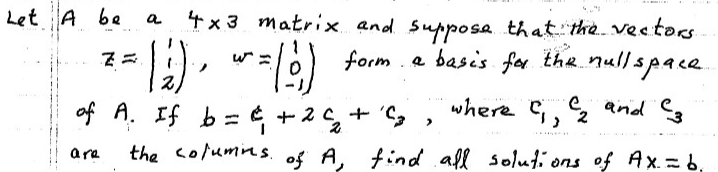 Let A be a 4x3 matrix and suppose that the vectors
z = (1 1 2), w = (1 0 -1) form a basis for the nullspace
of A. If b = c₁ + 2 c₂ + c₃, where c₁, c₂ and c₃
are the columns of A, find all solutions of Ax = b.